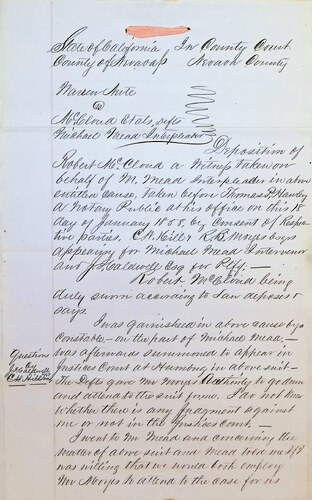 State of California In County Court
County of Nevada Nevada County
Warren
McCloud et als, Defts
Michael Mead Interpleader
Deposition of
Robert McCloud a Witness taken on
behalf of M. Mead Interpleader in above
entitled cause, taken before Thomas P. Hawley
a Notary Public at his office on this 18
day of January by Consent of Respec
tive parties. C. H. Hill & Esqrs
appearing for Michael Mead Intervenor
and J. Caldwell Esq for Plff. —
Robert McCloud being
duly sworn according to Law deposes &
says.
I was garnisheed in above cause by a
Constable — on the part of Michael Mead, —
was afterwards summoned to appear in
Justices Court at in above suit —
The Defts gave Mr Authority to go down
and attend to the suit for me. I do not know
Whether there is any Judgment against
me or not in the Justices Court. —
I went to Mr Mead and concerning the
matter of above suit and Mead told me if I
was willing that we would both employ
Mr to attend to the case for us
Question
by
J Caldwell
C. H. Hill